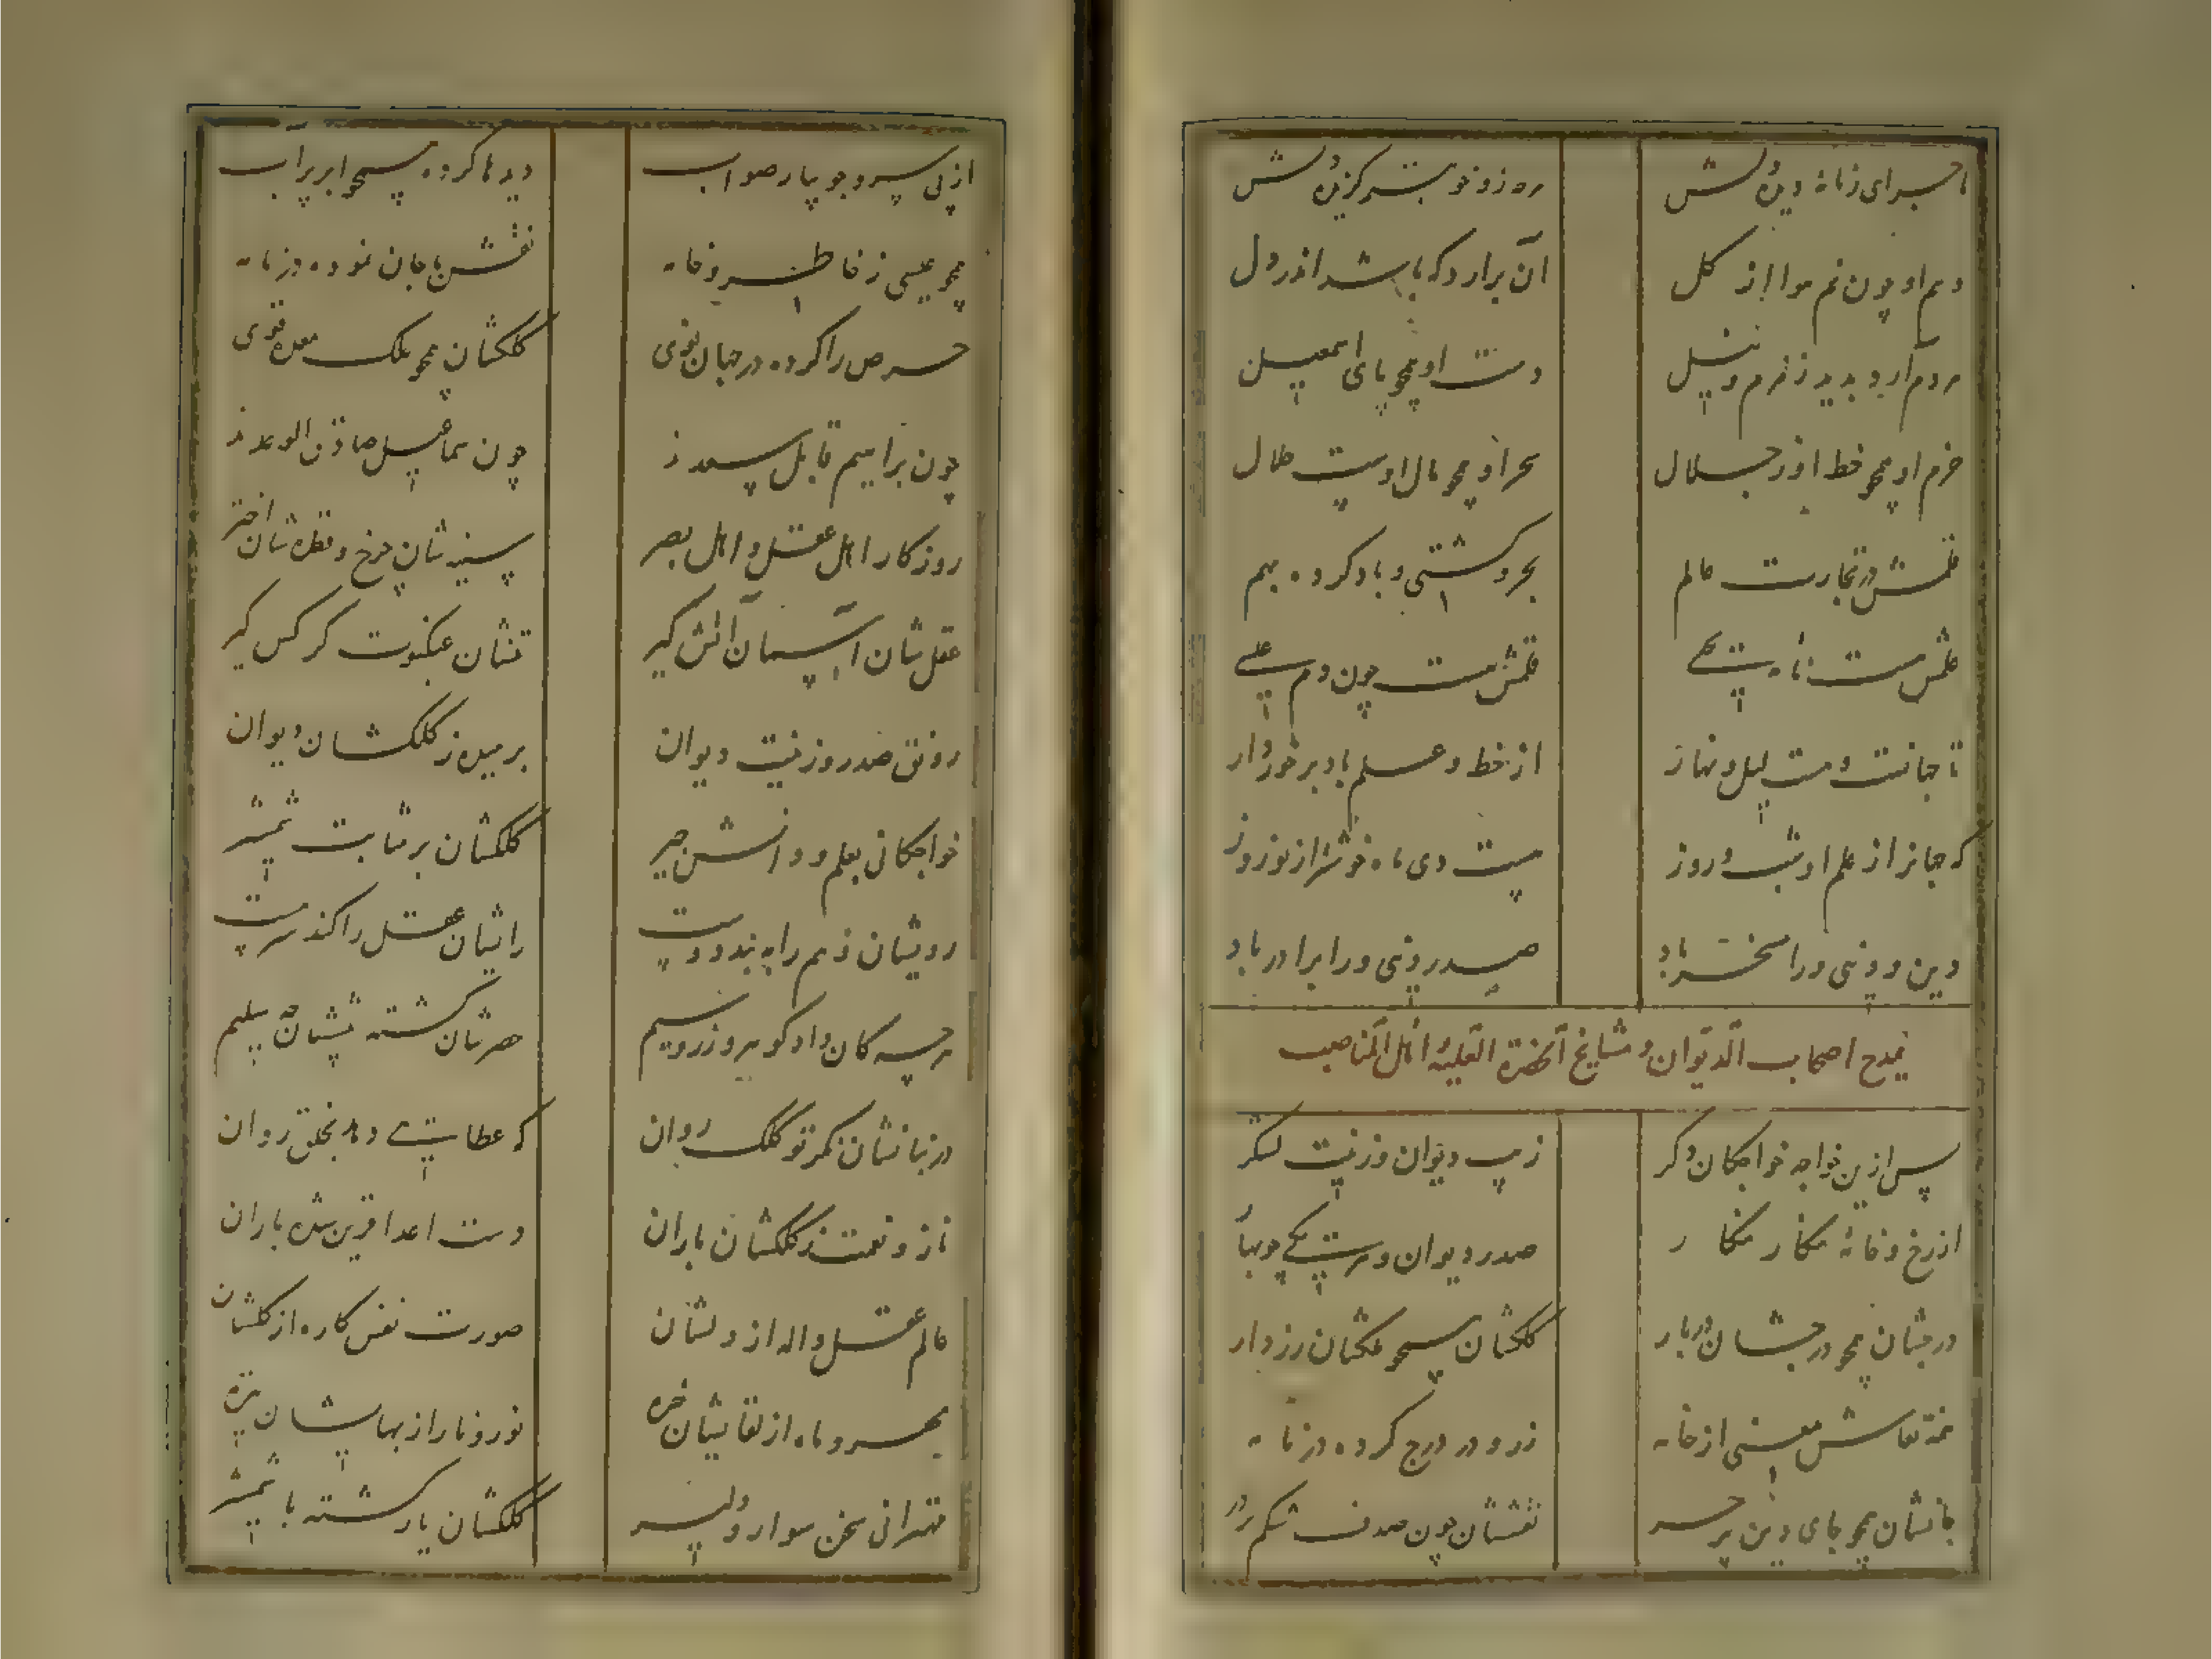 ماجرای زمانه دیده دلش ره زو خوشتر گزیده دلش
دم او چون نم هوا از گل آن برآرد که باشد اندر دل
مردم آرد پدید زمزم و نیل دست او همچو پای اسمعیل
حزم او همچو خط او ز جلال سحر او همچو مال اوست حلال
قلمش در تجارت عالم بحر و کشتی و باد کرده بهم
قلمش چون دم
تا جهانست و هست لیل و نهار از خط و علم باد برخوردار
که جهانرا از علم او شب و روز هست دی ماه خوشتر از نوروز
دین و دنیی ورا مسخر باد صدر دنیی ورا برادر باد
فی مدح اصحاب الدیوان و مشایخ الحضرة العلیه و اهل المناصب
پس ازین خواجه خواجگان دگر زیب دیوان و زینت لشکر
از رخ و خامه نگار نگار صدر دیوان و هست یکی چو بهار
درجشان همچو درجشان دربار کلکشان همچو ملکشان رزدار
همه نقاش معنی از خامه زر و در درج کرده در نامه
جانشان همچو جای دین پر حر نفسشان چون صدف شکم پر در
از پی سر و جویبار صواب دیدها کرده همچو ابر پرآب
همچو عیسی ز خاطر و خامه نقش با جان نموده در نامه
حرص را کرده در جهان فربی کلکشان همچو ملک معده قوی
چون براهیم قابل پسرند چون سماعیل صادق الوعدند
روزگار اهل عقل و اهل بصر سینه شان چرخ و نقطه شان اختر
عقل شان آسمان آتش گیر تنشان عنکبوت کرکس گیر
رونق صدر و زینت دیوان بر میده ز کلکشان دیوان
خواجگانی بعلم و دانش چیر کلکشان بر مثابت شمشیر
رویشان زهر را به بندد دست رایشان عقل را کند سرمست
هرچه کان داد گوهر و زر و سیم صرشان گشته پیششان چه سلیم
در بنانشان نگر تو کلک روان که عطا بیست دهد بخلق روان
ناز و نعمت ز کلکشان باران دست اعدا قرین شده باران
عالم عقل واله از دلشان صورت نفس کاره از گلشان
مهر و ماه از لقایشان خیره نور و نار از بهایشان تیره
مهترانی سخن سوار و دلیر کلکشان یار گشته با شمشیر